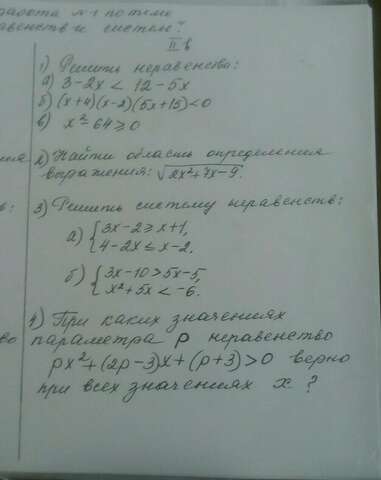 работа №1 по теме
II в
1) Решить неравенства:
а) 3-2x < 12-5x
б) (x+4)(x-2)(5x+15)<0
в) x²-64≥0
2) Найти область определения
выражения: √2x²+7x-9.
3) Решить систему неравенств:
а) {3x-2≥x+1,
4-2x≤x-2.
б) {3x-10>5x-5,
x²+5x<-6.
4) При каких значениях
параметра p неравенство
px²+(2p-3)x+(p+3)>0 верно
при всех значениях x ?